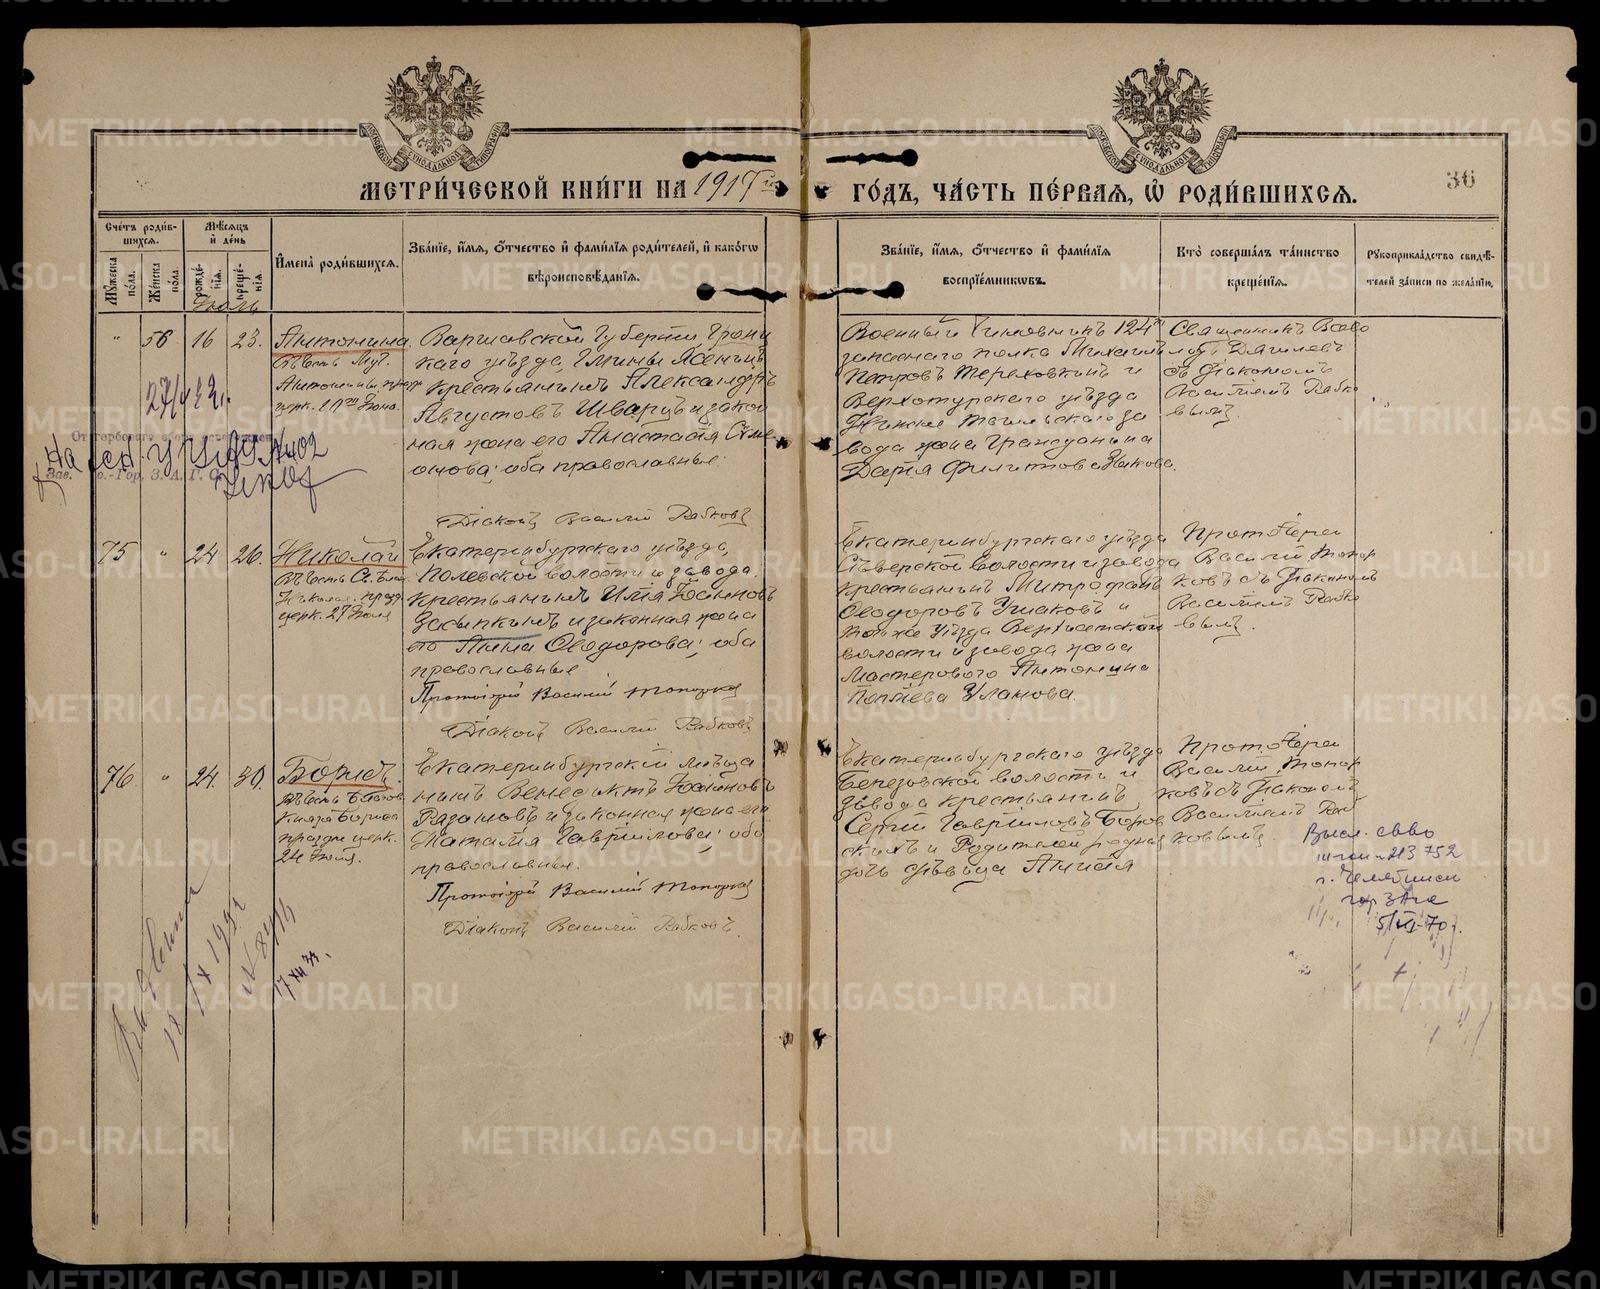 МЕТРИ́ЧЕСКОЙ КНИ́ГИ НА 1917 й
ГО́ДЪ, ЧА́СТЬ ПЕ́РВАЯ, Ѡ РОДИ́ВШИХСЯ.
36
Сче́тъ роди́в-
шихся.
Мꙋ́жеска по́ла.
Же́нска по́ла.
Мѣ́сяцъ
и҆ де́нь
рожде́-
нїя.
креще́-
нїя.
И҆мена̀ роди́вшихся.
Зва́нїе, и҆́мя, ѻ҆́тчество и҆ фами́лїя роди́телей, и҆ како́гѡ
вѣроисповѣ́данїя.
Зва́нїе, и҆́мя, ѻ҆́тчество и҆ фами́лїя
воспрїе́мникѡвъ.
Кто̀ соверша́лъ та́инство
креще́нїя.
Рꙋкоприкла́дство свидѣ́-
телей за́писи по жела́нїю.
Іюль
" 56 16 23.
Антонина
Въ честь Муч.
Антонины празд
церк. Іюня.
Варшавской губерніи Гроец
каго уѣзда, Гмины Ясенецъ
крестьянинъ Александръ
Августовъ Шварцъ и закон
ная жена его Анастасія Симе
онова; оба православные.
Діаконъ Василій Рабковъ
Военный Чиновникъ 124го
запаснаго полка Михаилъ
Петровъ Тереховкинъ и
Верхотурскаго уѣзда
Нижне Тагильскаго за
вода жена гражданина
Дарія Филиппова Зыкова.
Священникъ Всево
лодъ Дягилевъ
съ діакономъ
Василіемъ Рабко
вымъ.
75 " 24 26.
Николай
Въ честь Св. Бл.
Николая празд.
церк. 27 Іюля
Екатеринбургскаго уѣзда,
Полевской волости и завода
крестьянинъ Илія Іоанновъ
Засыпкинъ и законная жена
его Анна Ѳеодорова; оба
православные
Протоіерей Василій Топорковъ
Діаконъ Василій Рабковъ
Екатеринбургскаго уѣзда
Сѣверской волости и завода
крестьянинъ Митрофанъ
Ѳеодоровъ Ушаковъ и
того же уѣзда Верхисетской
волости и завода жена
мастерового Антонина
Уланова.
Протоіерей
Василій Топор
ковъ съ діакономъ
Василіемъ Рабко
вымъ.
76 " 24. 30.
Борисъ.
Въ честь Благов.
Князя Бориса
праздн. церк.
24 Іюля.
Екатеринбургскій мѣща
нинъ Венедиктъ Іоанновъ
и законная жена его
Наталія Гавріилова; оба
православные.
Протоіерей Василій Топорковъ
Діаконъ Василій Рабковъ.
Екатеринбургскаго уѣзда
Березовской волости и
завода крестьянинъ
Сергій Гавріиловъ Боров
скихъ и родителей родная
дочь дѣвица Анисія
Протоіерей
Василій Топор
ковъ съ діакономъ
Василіемъ Раб
ковымъ
Высл. св-во
г. Челябинск
гор ЗАГС
5/III-70 г.
17 XII 34.